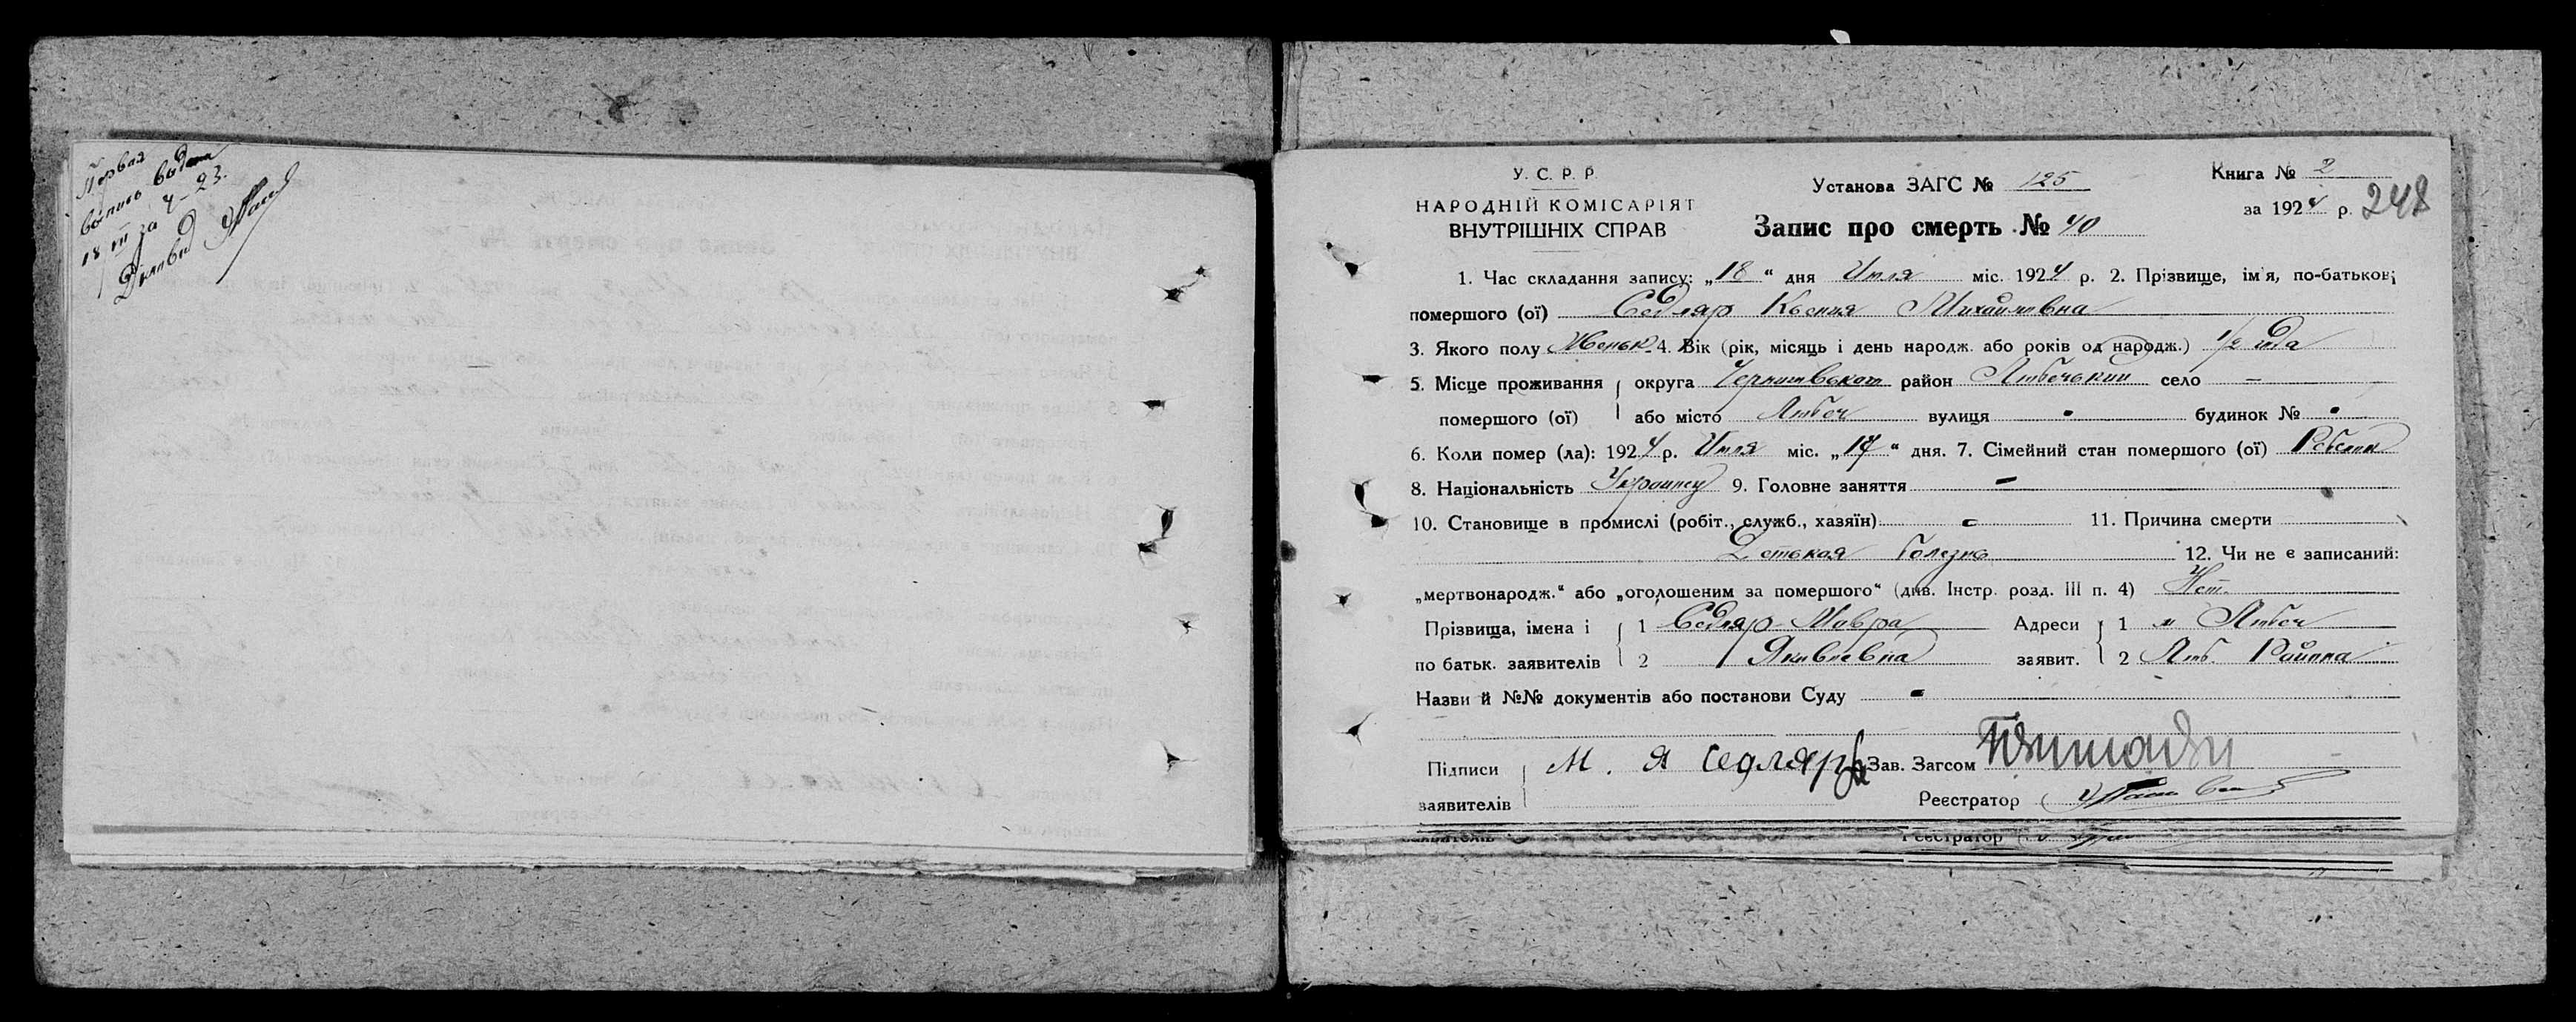 Первая
выпись выдана
18 VII за 4-23.
Діловод
У. С. Р. Р.
НАРОДНІЙ КОМІСАРІЯТ
ВНУТРІШНІХ СПРАВ
Установа ЗАГС № 125
Запис про смерть № 40
Книга № 2
за 1924 р. 248
1. Час складання запису: „18“ дня Июля міс. 1924 р. 2. Прізвище, ім'я, по-батькові
помершого (ої) Седляр Ксения Михайловна
3. Якого полу Женск. 4. Вік (рік, місяць і день народж. або років од народж.) 1/2 года
5. Місце проживання округа Черниговського район Любечський село –
помершого (ої) або місто Любеч вулиця будинок №
6. Коли помер (ла): 1924 р. Июля міс. „17“ дня. 7. Сімейний стан помершого (ої) Ребенок
8. Національність Украинец 9. Головне заняття –
10. Становище в промислі (робіт., служб., хазяїн) 11. Причина смерти
Детская болезнь 12. Чи не є записаний:
„мертвонародж.“ або „оголошеним за помершого“ (див. Інстр. розд. III п. 4) Нет.
Прізвища, імена і 1 Седляр Мавра Адреси 1 м Любеч
по батьк. заявителів 2 Яковлевна заявит. 2 Люб. Района
Назви й №№ документів або постанови Суду -
Підписи М. Я Седляр Зав. Загсом
заявителів Реєстратор
Реєстратор